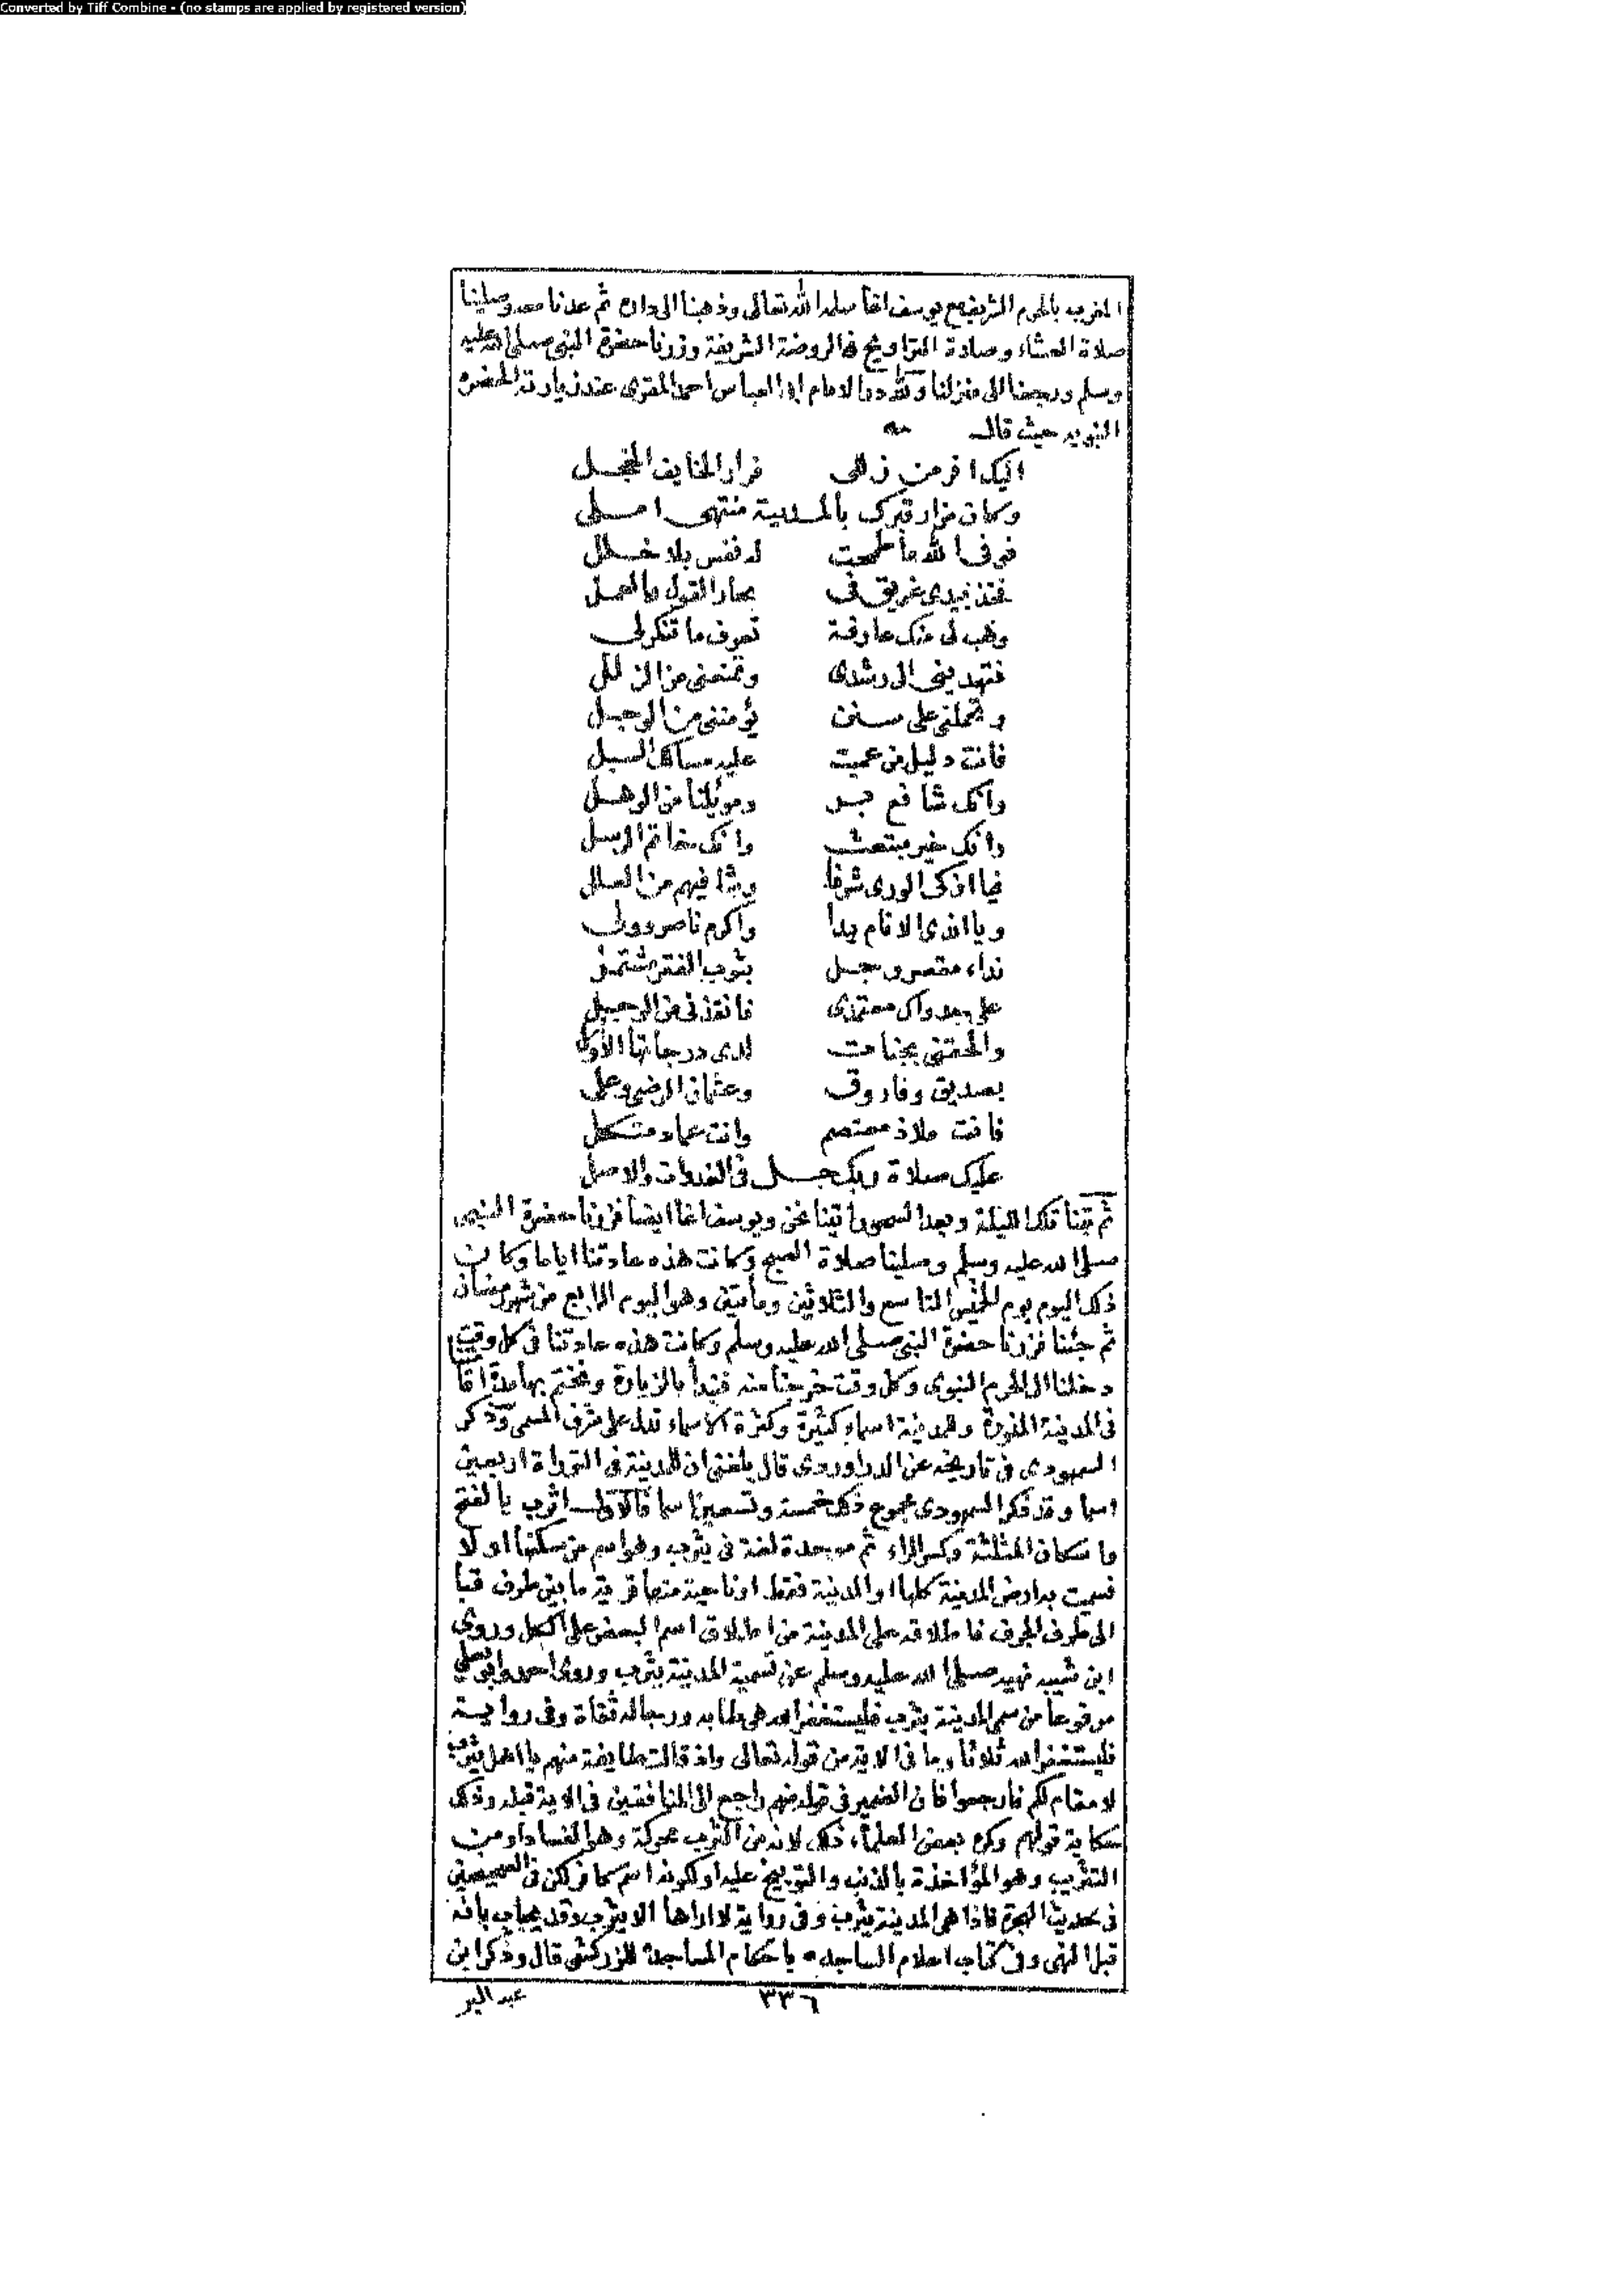 Converted by Tiff Combine - (no stamps are applied by registered version)
المغرب بالحرم الشريف مع يوسف اغا سلمه الله تعالى وذهبنا الى داره ثم عدنا معه وصلينا
صلاة العشاء وصلاة التراويح في الروضة الشريفة وزرنا حضرة النبي صلى الله عليه
وسلم ورجعنا الى منزلنا ولله در الامام ابي العباس احمد المقري عند زيارته الحضرة
النبويه حيث قال
اليك افر من زللي فرار الخايف الخجل
وكان مزار قبرك بالمدينة منتهى املي
فوفى الله ما طمحت له نفس بلا خلل
فخذ بيدي غريق في بحار القول والعمل
وهب لي منك عارفة تعرف ما تنكر لي
فتهديني الى رشدي وتمنعني من الزلل
وتحملني على سنن يؤمنني من الوجل
فانت دليل من عميت عليه مسالك السبل
وانك شافع بر وموئلنا من الوهل
وانك خير مبتعث وانك خاتم الرسل
فيا ازكى الورى شرفا وشافيهم من العلل
ويا اندى الانام يدا واكرم ناصر وولي
نداء مقصر وجل بثوب الفقر مشتمل
على جدواك معتمدي فانقذني من
والحقني بجنات لدى درجاتها الاول
بصديق وفاروق وعثمان الرضى وعلي
فانت ملاذ معتصم وانت عماد متكل
عليك صلاة ربك جل في الغدوات والاصل
ثم بتنا تلك الليلة وبعد السحور اتينا نحن ويوسف اغا ايضا فزرنا حضرة النبي
صلى الله عليه وسلم وصلينا صلاة الصبح وكانت هذه عادتنا اياما وكان
ذلك اليوم يوم الخميس التاسع والثلاثين ومأتين وهو اليوم الرابع من شهر رمضان
ثم جئنا فزرنا حضرة النبي صلى الله عليه وسلم وكانت هذه عادتنا في كل وقت
دخلنا الى الحرم النبوي وكل وقت خرجنا منه فنبدأ بالزيارة ونختم بها مدة اقا
في المدينة المنورة وللمدينة اسماء كثيرة وكثرة الاسماء تدل على شرف المسمى وذكر
السمهودي في تاريخه عن الدراوردي قال بلغني ان للمدينة في التوراة اربعين
اسما وقد ذكر السمهودي مجموع ذلك خمسة وتسعين اسما فالاول اثرب بالفتح
واسكان المثلثة وكسر الراء ثم موحدة لغة في يثرب وهو اسم من سكنها اولا
فسميت به ارض المدينة كلها او المدينة فقط او ناحية منها قرية ما بين طرف قبا
الى طرف الجرف فاطلاقه على المدينة من اطلاق اسم البعض على الكل وروى
ابن شيبه نهيه صلى الله عليه وسلم عن تسمية المدينة يثرب وروى احمد وابو يعلى
مرفوعا من سمى المدينة يثرب فليستغفر الله هي طابه ورجاله ثقاة وفي رواية
فليستغفر الله ثلاثا وما في الاية من قوله تعالى واذ قالت طايفة منهم يا اهل يثرب
لا مقام لكم فارجعوا فان الضمير في قوله منهم راجع الى المنافقين في الاية قبله وذلك
حكاية قولهم وكره بعض العلماء ذلك لانه من الثرب محركة وهو الفساد او من
التثريب وهو المؤاخذة بالذنب والتوبيخ عليه او لكونه اسم كافر لكن في الصحيحين
في حديث الهجرة فاذا هي المدينة يثرب وفي رواية لا اراها الا يثرب وقد يجاب بانه
قبل النهي وفي كتاب اعلام الساجد باحكام المساجد للزركشي قال وذكر ابن
٣٣٦
عبد البر